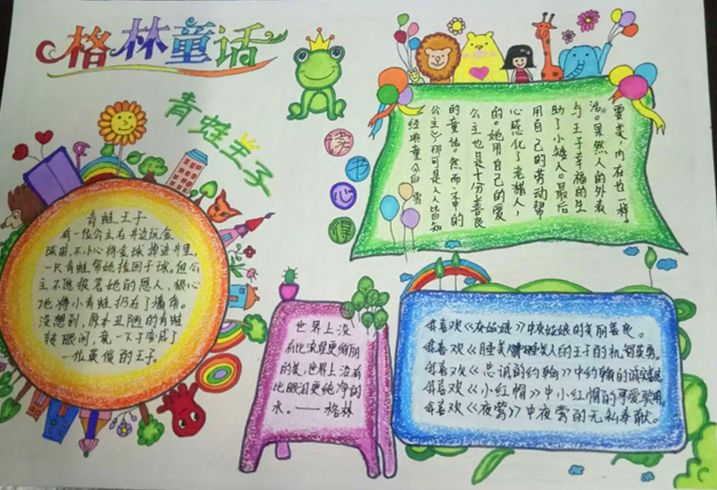 格林童话
青蛙王子
青蛙王子
有一位公主在井边玩金
球用,不小心将金球掉进井里,
一只青蛙帮她捡回了球。但公
主不愿报答她的恩人,狠心
地将小青蛙扔在了墙角。
没想到,原本丑陋的青蛙
转眼间,竟一下子变成了
一位英俊的王子。
读书心得
经典童话白雪
公主》那可是人人皆知
的童话。然而,其中的
公主也是十分善良
的。她用自己的爱
心感化了老猎人,
用自己的劳动帮
助了小矮人。最后
与王子幸福的生
活。果然人的外表
要美,内在也一样。
世界上没
有比
更绚丽
的美,世界上没有
比眼泪更纯净的
水。——格林
每喜欢《灰姑娘》中灰姑娘的美丽善良。
每喜欢《睡美人》的王子的机智英勇。
每喜欢《忠诚的约翰》中约翰的诚实
每喜欢《小红帽》中小红帽的可爱
每喜欢《夜莺》中夜莺的无私奉献。